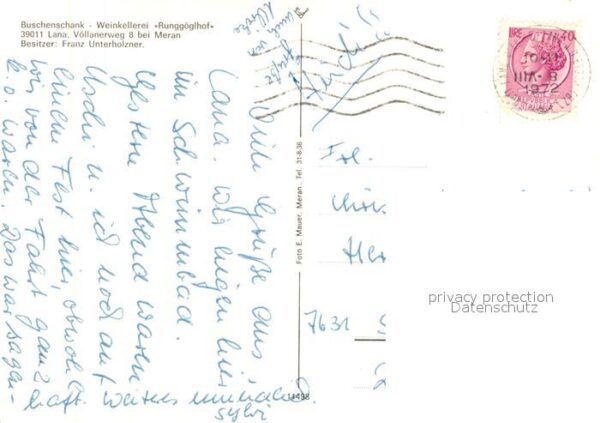 Buschenschank - Weinkellerei «Runggöglhof»
39011 Lana, Völlanerweg 8 bei Meran
Besitzer: Franz Unterholzner.
Viele Grüße aus
Lana. Wir liegen hier
im Schwimmbad.
Gestern Abend waren
Uschi u. ich noch auf
einem Fest hier obwohl
wir von der Fahrt ganz
k.o. waren. Das war sagen-
haft. Weiteres mündlich.
Sylvi
Foto E. Mauer, Meran. Tel. 31-8-36
11498
LIRE 40
1972
Frl.
Her
7631
privacy protection
Datenschutz